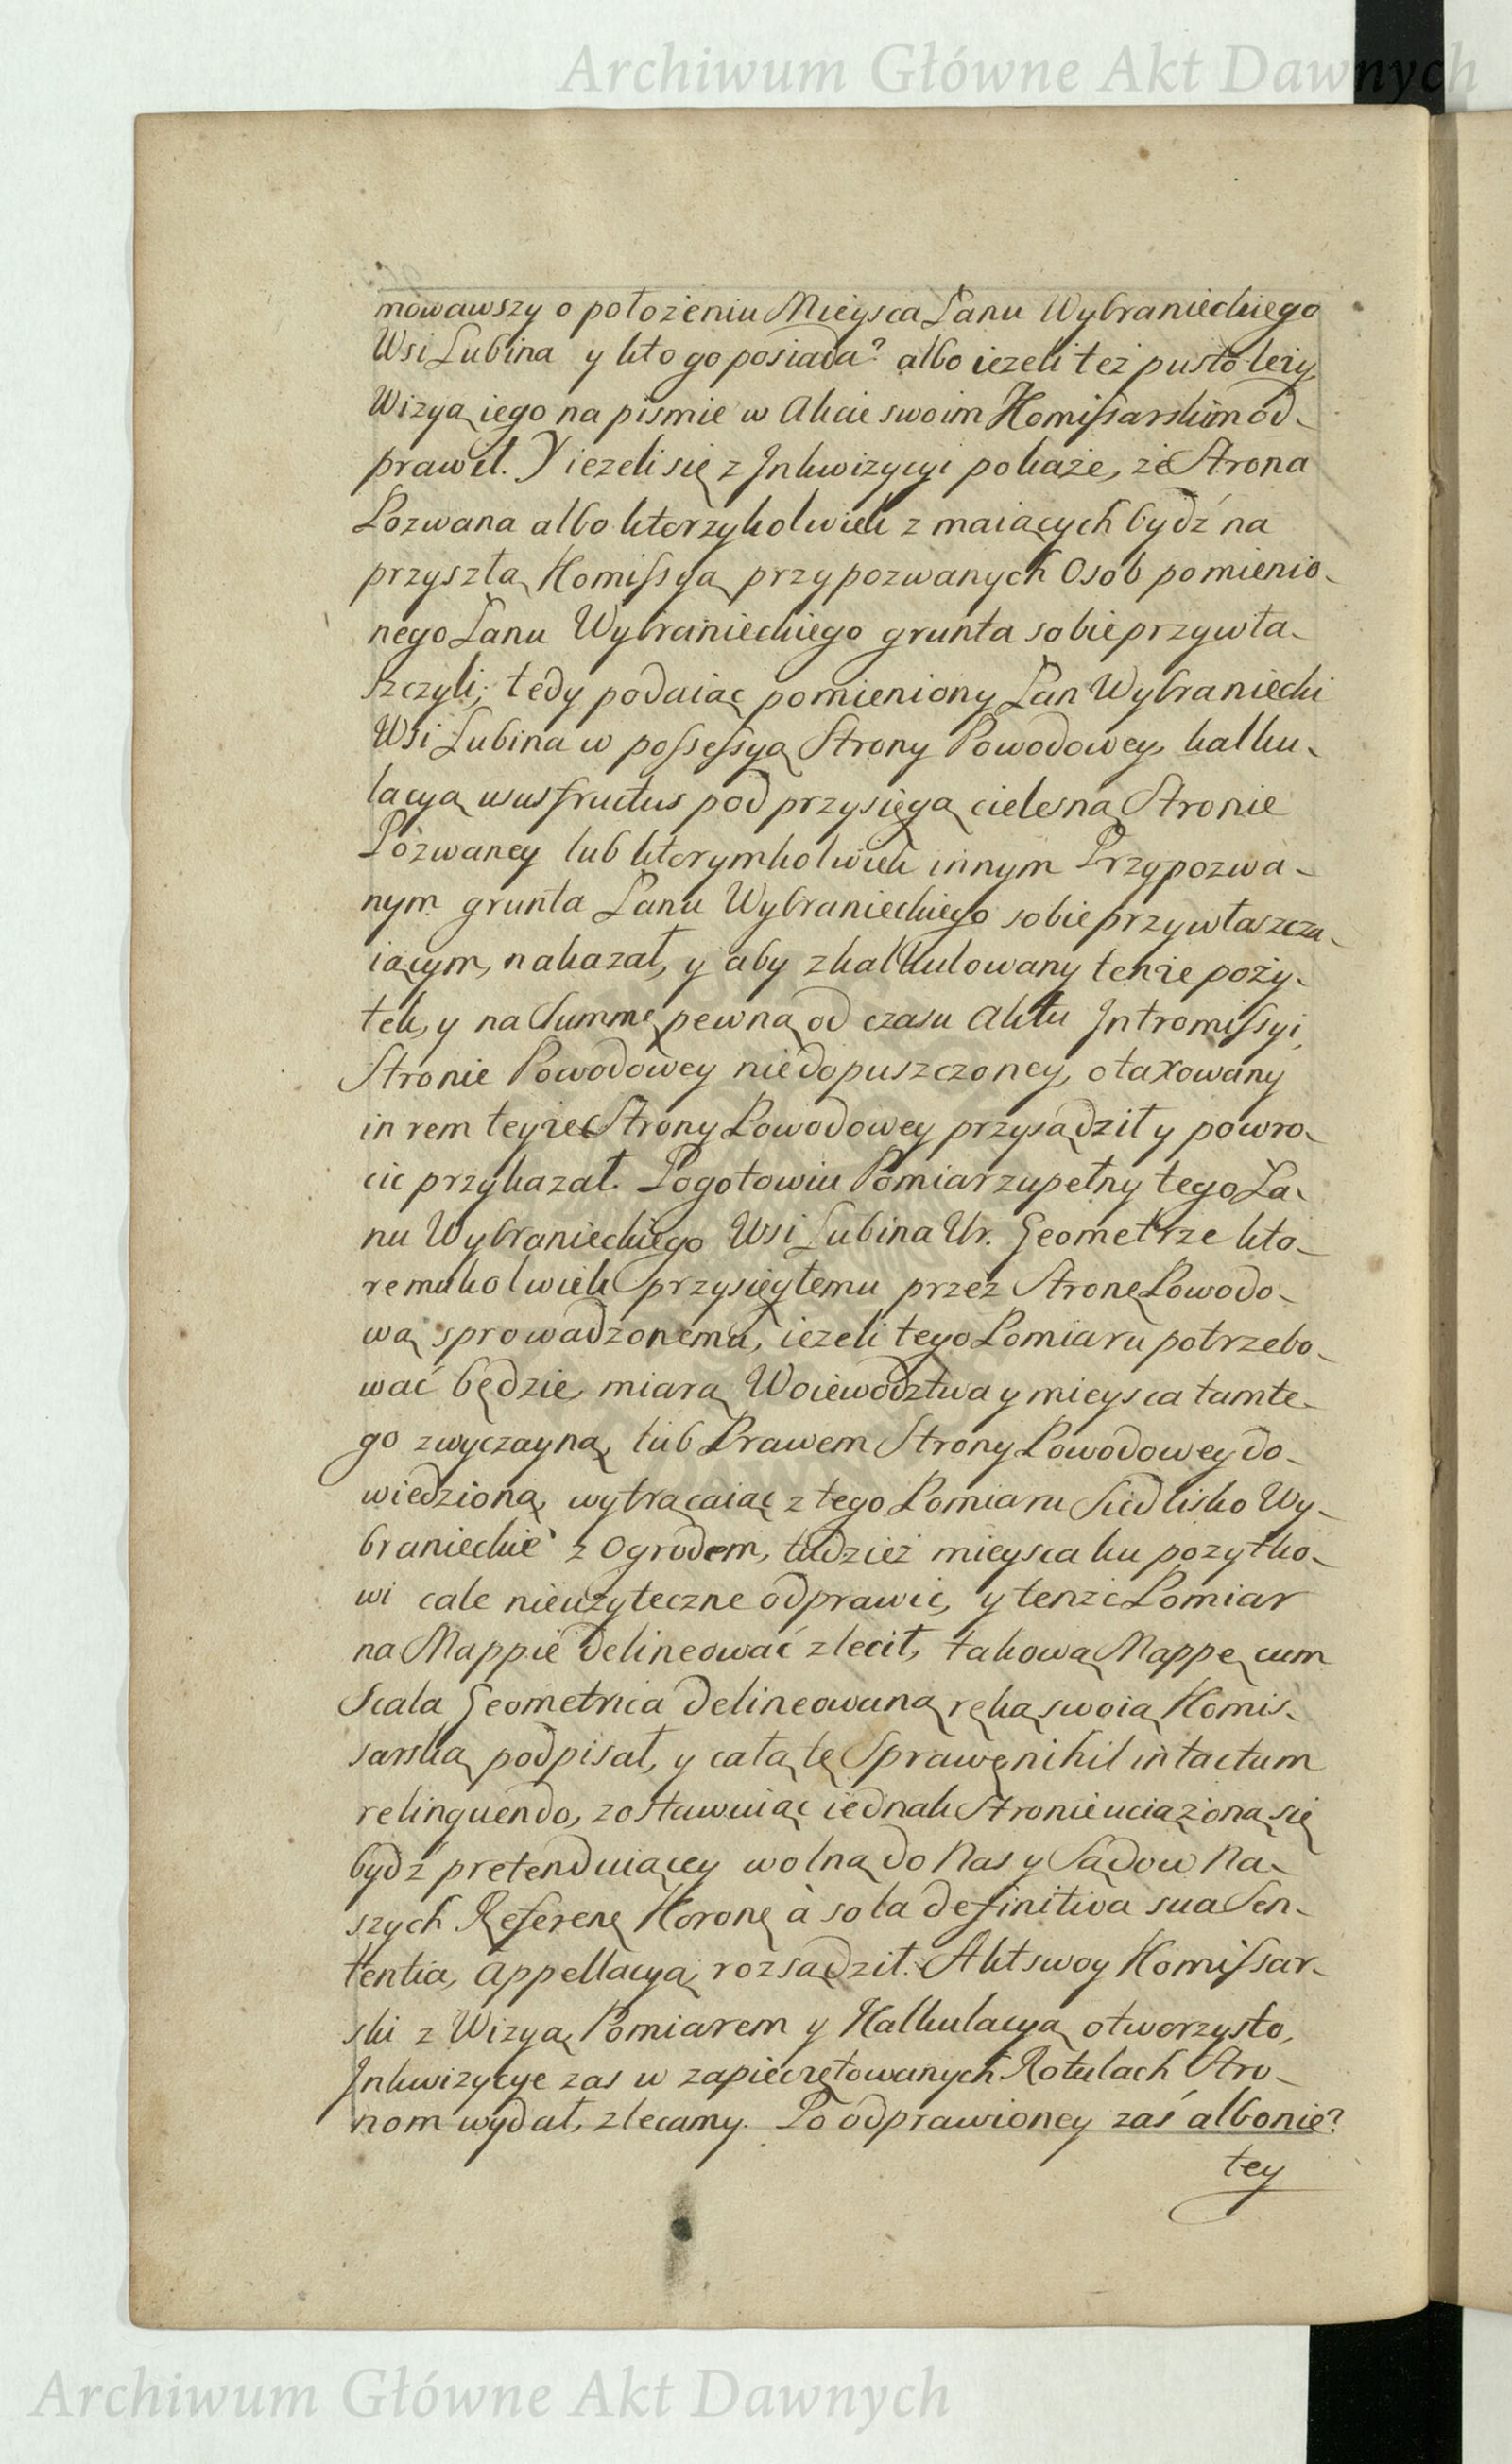 Archiwum Główne Akt Dawnych
mowawszy o położeniu Mieysca Łanu Wybranieckiego
Wsi Lubina y kto go posiada? albo ieżeli też pusto leży,
Wizyą iego na pismie w Akcie swoim Komissarskim od-
prawił. Y ieżeli się z Inkwizycyi pokaże, że Strona
Pozwana albo ktorzykolwiek z maiących bydź na
przyszłą Komissyą przypozwanych Osob pomienio-
nego Łanu Wybranieckiego grunta sobie przywła-
szczyli; tedy podaiąc pomieniony Łan Wybraniecki
Wsi Lubina w possessyą Strony Powodowey, kalku-
lacyą ususfructus pod przysięgą cielesną Stronie
Pozwaney lub ktorymkolwiek innym Przypozwa-
nym grunta Łanu Wybranieckiego sobie przywłaszcza-
iącym, nakazał, y aby zkalkulowany tenże poży-
tek, y na Summę pewną od czasu Aktu Intromissyi,
Stronie Powodowey niedopuszczoney, otaxowany
in rem teyże Strony Powodowey przysądził y powro-
cic przykazał. Pogotowiu Pomiar zupełny tego Ła-
nu Wybranieckiego Wsi Lubina Ur. Geometrze kto-
remukolwiek przysięgłemu przez Stronę Powodo-
wą sprowadzonemu, ieżeli tego Pomiaru potrzebo-
wać będzie, miarą Woiewodztwa y mieysca tamte-
go zwyczayną, lub Prawem Strony Powodowey do-
wiedzioną, wytrącaiąc z tego Pomiaru Siedlisko Wy-
branieckie z Ogrodem, tudzież mieysca ku pożytko-
wi cale nieużyteczne odprawic, y tenże Pomiar
na Mappie delineować zlecił, takową Mappę cum
Scala Geometrica delineowaną ręką swoią Komis-
sarską podpisał, y całą tę Sprawę nihil intactum
relinquendo, zostawuiąc iednak Stronie uciążoną się
bydź pretenduiącey wolną do Nas y Sądow Na-
szych Referen Koron à sola definitiva sua Sen-
tentia, Appellacyą, rozsądził. Akt swoy Komissar-
ski z Wizyą, Pomiarem y Kalkulacyą otworzysto,
Inkwizycye zas w zapieczętowanych Rotulach Stro-
nom wydał, zlecamy. Po odprawioney zaś albo nie?
tey
Archiwum Główne Akt Dawnych